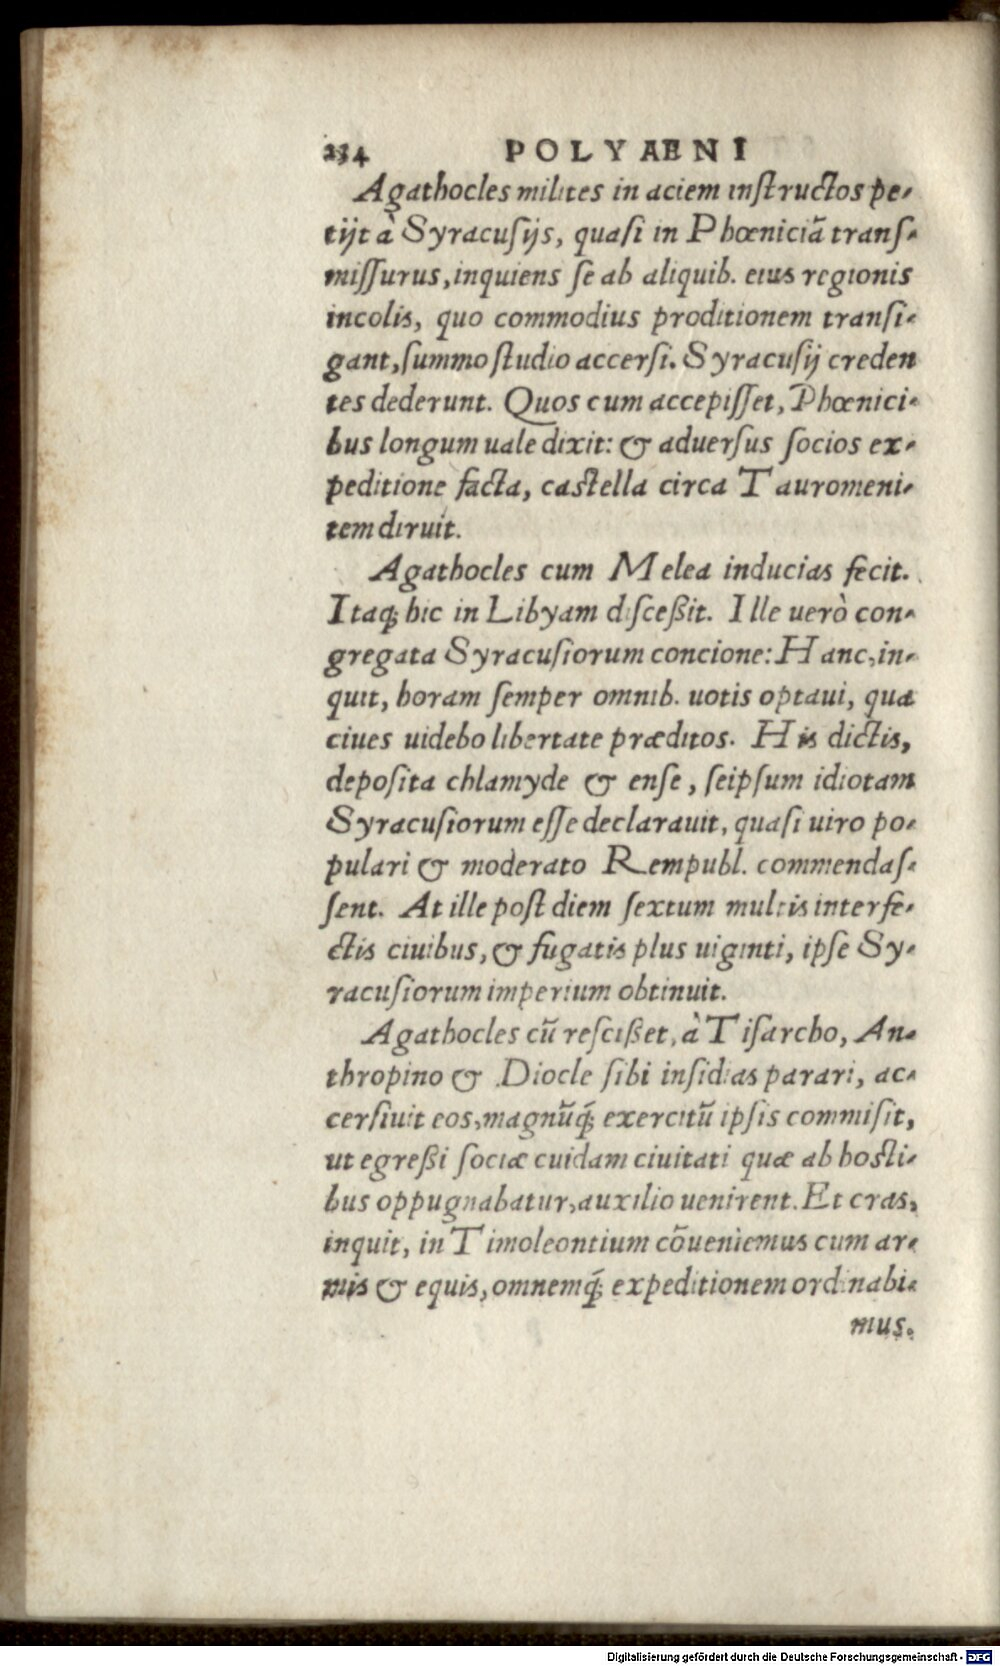 234 POLYAENI
Agathocles milites in aciem instructos pe-
tijt à Syracusijs, quasi in Phœniciā trans-
missurus, inquiens se ab aliquib. eius regionis
incolis, quo commodius proditionem transi-
gant, summo studio accersi. Syracusij creden
tes dederunt. Quos cum accepisset, Phœnici-
bus longum uale dixit: & aduersus socios ex-
peditione facta, castella circa Tauromeni-
tem diruit.
Agathocles cum Melea inducias fecit.
Itaq; hic in Libyam disceßit. Ille uerò con-
gregata Syracusiorum concione: Hanc, in-
quit, horam semper omnib. uotis optaui, qua
ciues uidebo libertate præditos. His dictis,
deposita chlamyde & ense, seipsum idiotam
Syracusiorum esse declarauit, quasi uiro po-
pulari & moderato Rempubl. commendas-
sent. At ille post diem sextum multis interfe-
ctis ciuibus, & fugatis plus uiginti, ipse Sy-
racusiorum imperium obtinuit.
Agathocles cū rescißet, à Tisarcho, An-
thropino & Diocle sibi insidias parari, ac-
cersiuit eos, magnūq́; exercitū ipsis commisit,
ut egreßi sociæ cuidam ciuitati quæ ab hosti-
bus oppugnabatur, auxilio uenirent. Et cras,
inquit, in Timoleontium cōueniemus cum ar-
mis & equis, omnemq́; expeditionem ordinabi-
mus.
Digitalisierung gefördert durch die Deutsche Forschungsgemeinschaft - DFG